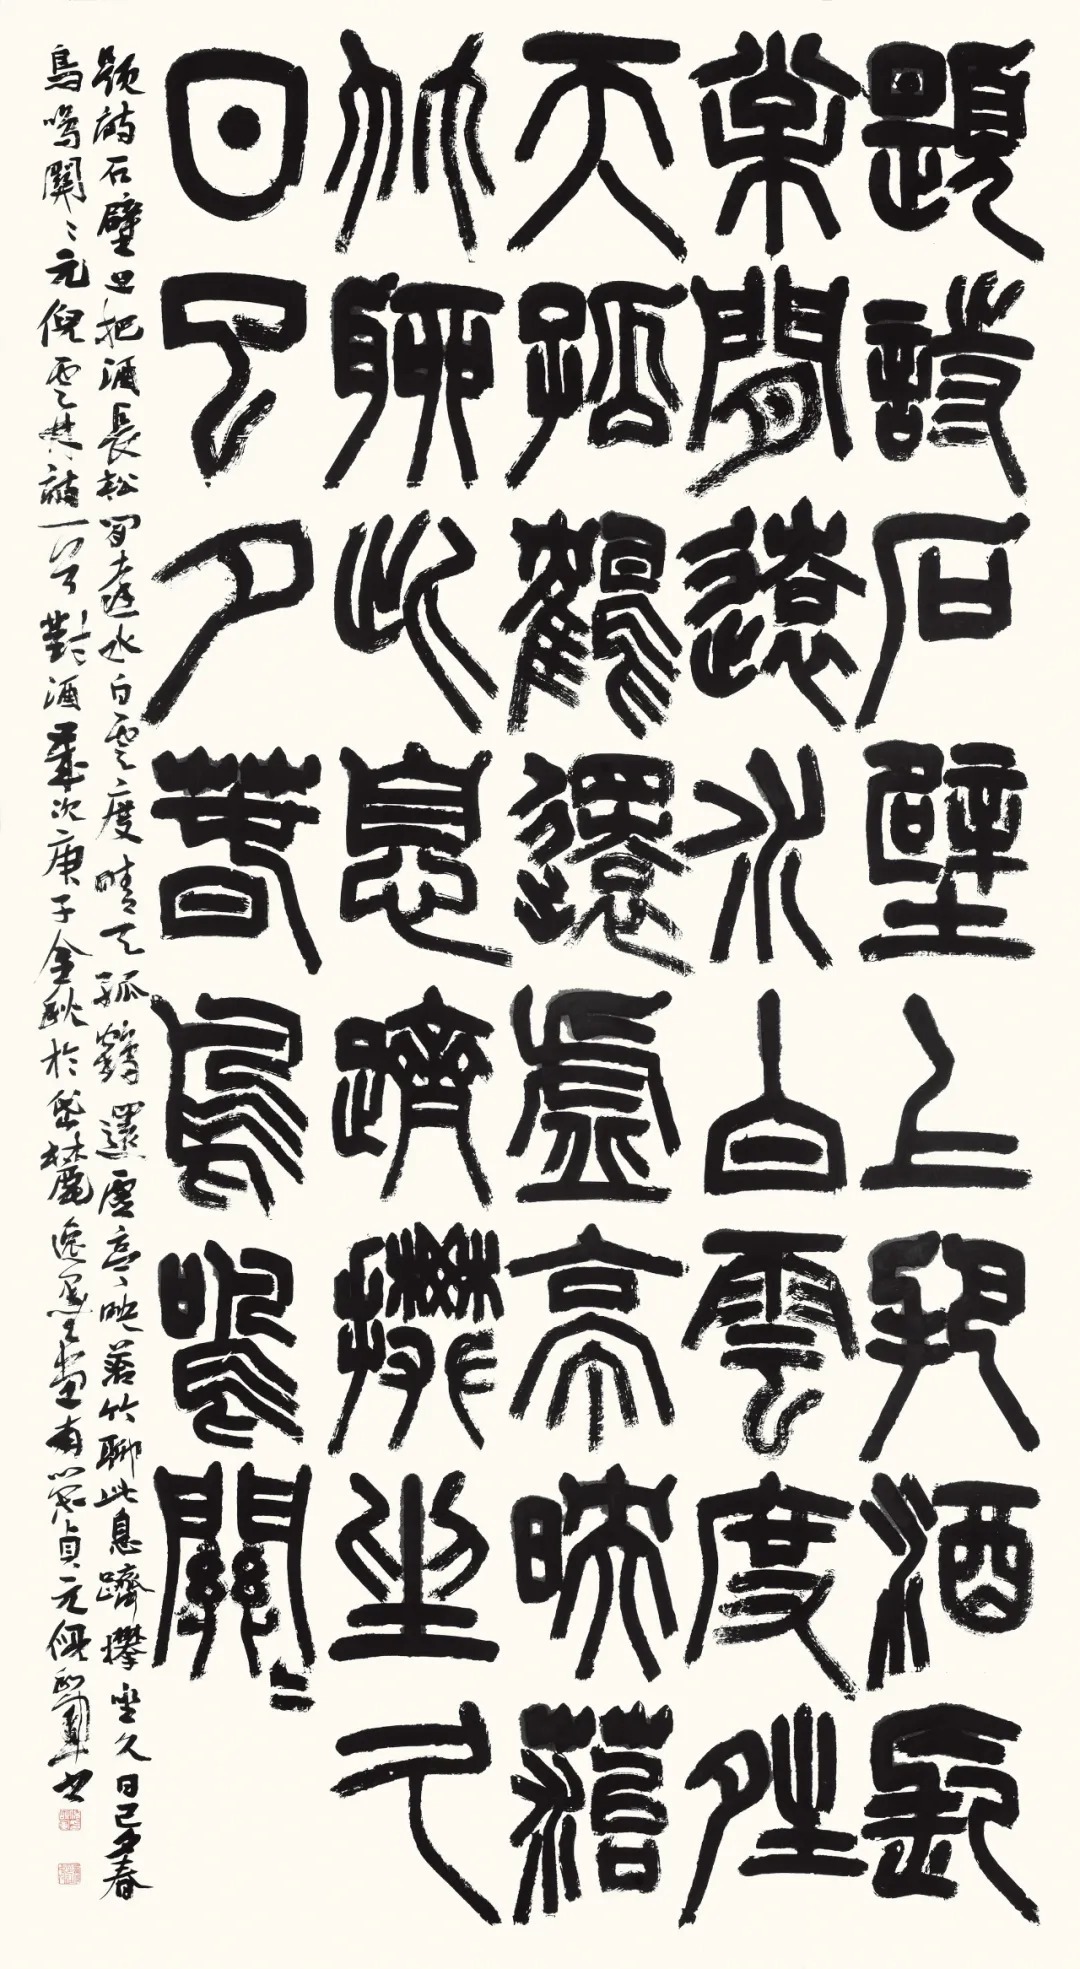 題詩石壁上把酒長
松間遠水白雲度晴
天孤鶴還虛亭映苔
竹聊此息躋攀坐久
日已夕春鳥鳴關〻
题诗石壁上把酒長松间遠水白雲度晴天孤鶴還虛亭映苔竹聊此息躋攀坐久日已夕春
鳥鳴關〻元倪雲林詩一首對酒歲次庚子金秋於岱麓逸墨堂南窓貞元